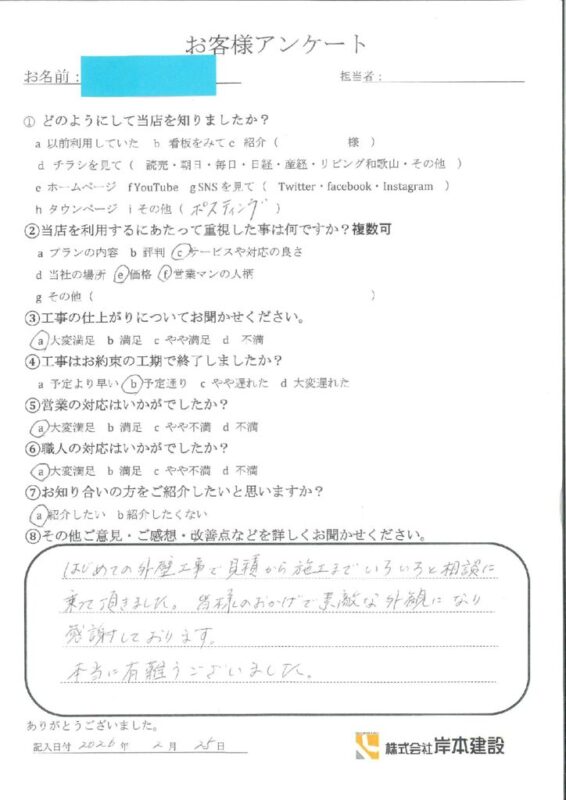 お客様アンケート
お名前：
担当者：
① どのようにして当店を知りましたか？
a 以前利用していた b 看板をみて c 紹介（ 様 ）
d チラシを見て（ 読売・朝日・毎日・日経・産経・リビング和歌山・その他 ）
e ホームページ f YouTube g SNSを見て（ Twitter・facebook・Instagram ）
h タウンページ i その他（ ポスティング ）
②当店を利用するにあたって重視した事は何ですか？複数可
a プランの内容 b 評判 c サービスや対応の良さ
d 当社の場所 e 価格 f 営業マンの人柄
g その他（ ）
③工事の仕上がりについてお聞かせください。
a 大変満足 b 満足 c やや満足 d 不満
④工事はお約束の工期で終了しましたか？
a 予定より早い b 予定通り c やや遅れた d 大変遅れた
⑤営業の対応はいかがでしたか？
a 大変満足 b 満足 c やや不満 d 不満
⑥職人の対応はいかがでしたか？
a 大変満足 b 満足 c やや不満 d 不満
⑦お知り合いの方をご紹介したいと思いますか？
a 紹介したい b 紹介したくない
⑧その他ご意見・ご感想・改善点などを詳しくお聞かせください。
はじめての外壁工事で見積から施工までいろいろと相談に
乗って頂きました。皆様のおかげで素敵な外観になり
感謝しております。
本当に有難うございました。
ありがとうございました。
記入日付 2026年 2月 25日
株式会社 岸本建設